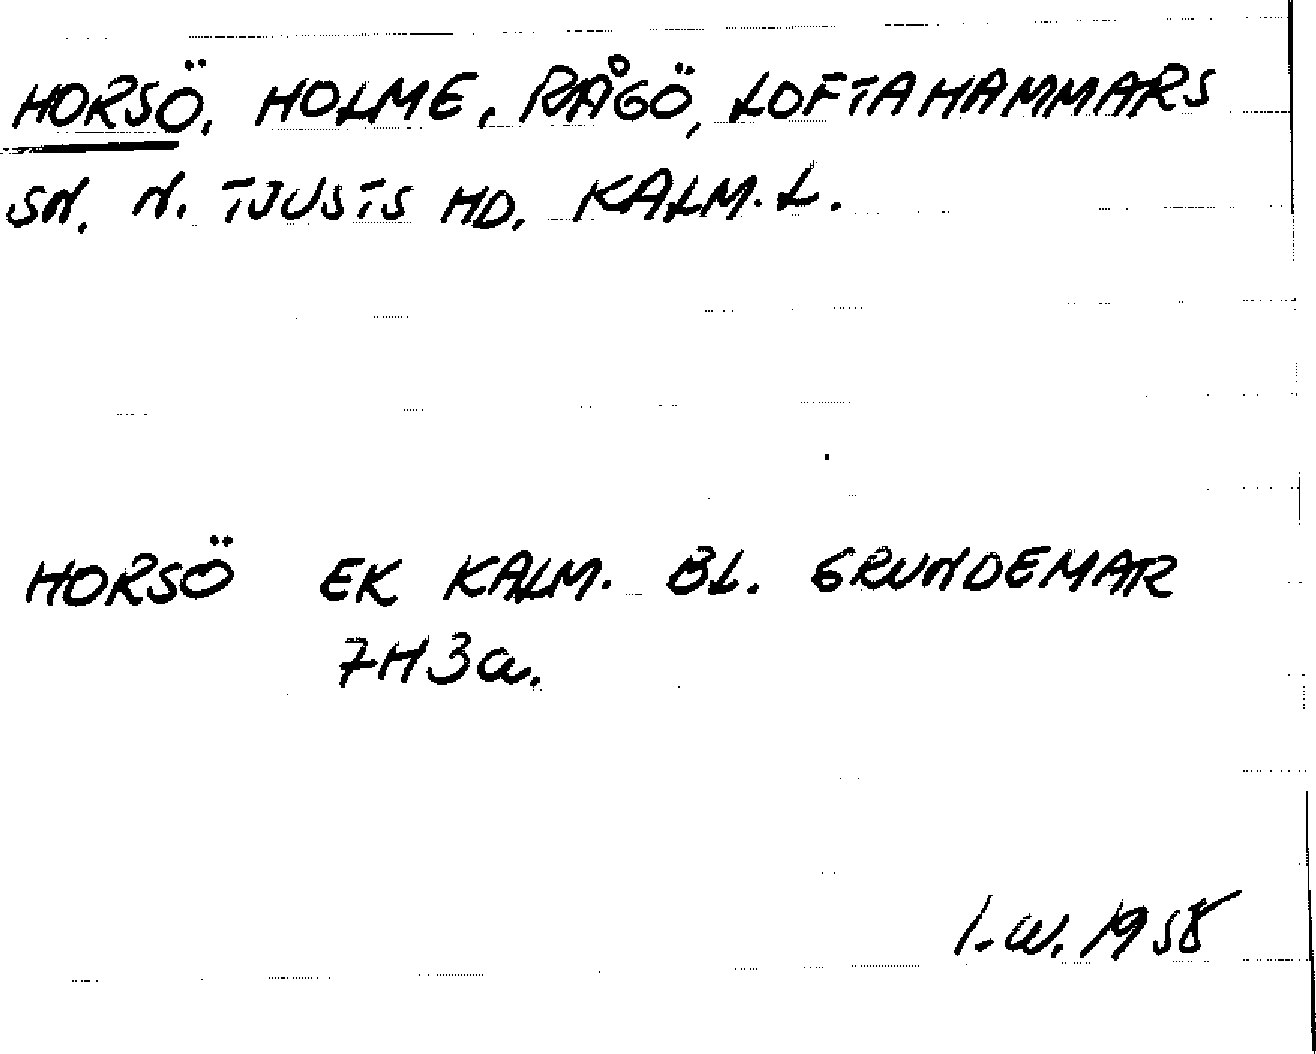 HORSÖ, HOLME, RÅGÖ, LOFTAHAMMARS
SN. N. TJUSTS HD. KALM. L.
HORSÖ EK KALM. BL. GRUNDEMAR
7H3a.
I.W. 1958